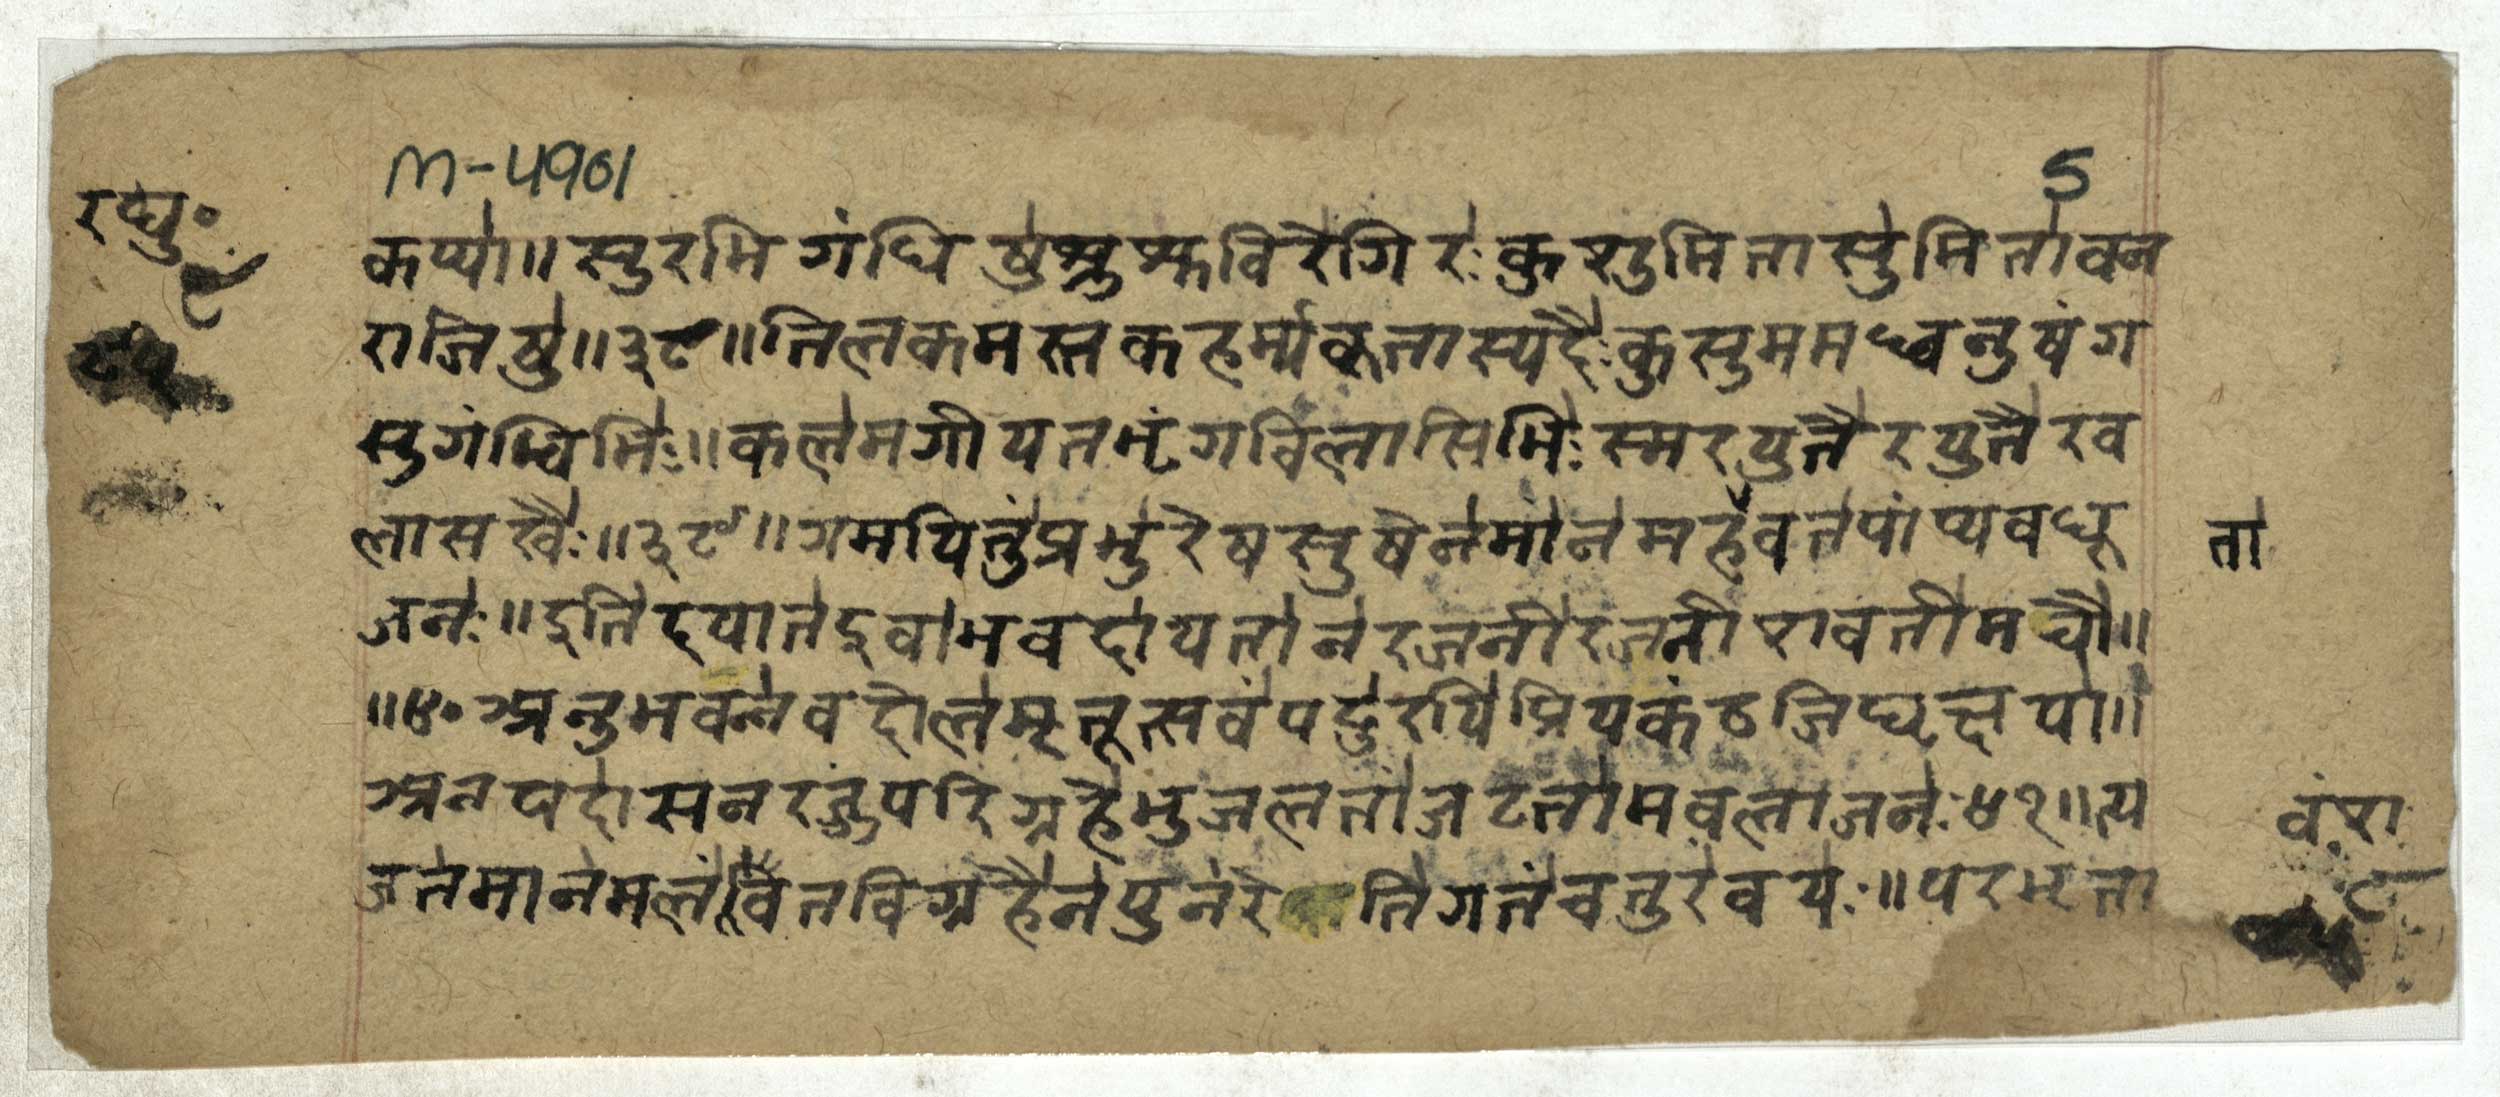 M-4901
5
रघु॰
९
कप्या॥सुरभिगंधिषुशुश्रुविरेगिरःकुसुमितासुमितावन
राजिषु॥३८॥तिलकमस्तकहर्म्यकृतास्पदैःकुसुममध्वनुषंग
सुगंधिभिः॥कलमगीयतभृंगविलासिभिःस्मरयुतैरयुतैरब
लासखैः॥३९॥गमयितुंप्रभुरेषसुषेनमांनमहवतपांप्यवधू
ता
जनः॥इतिदयातइवाभवदायतानरजनीरजनीशवतीमधौ॥
॥४०अनुभवन्नवदोलमृतूत्सवंपटुरपिप्रियकंठजिघृक्षया॥
अनयदासनरज्जुपरिग्रहेभुजलतांजटतामबलाजनः४१॥त्य
जतमानमलंवतविग्रहैर्नपुनरेतिगतंचतुरंवयः॥परभृता
वंश
९